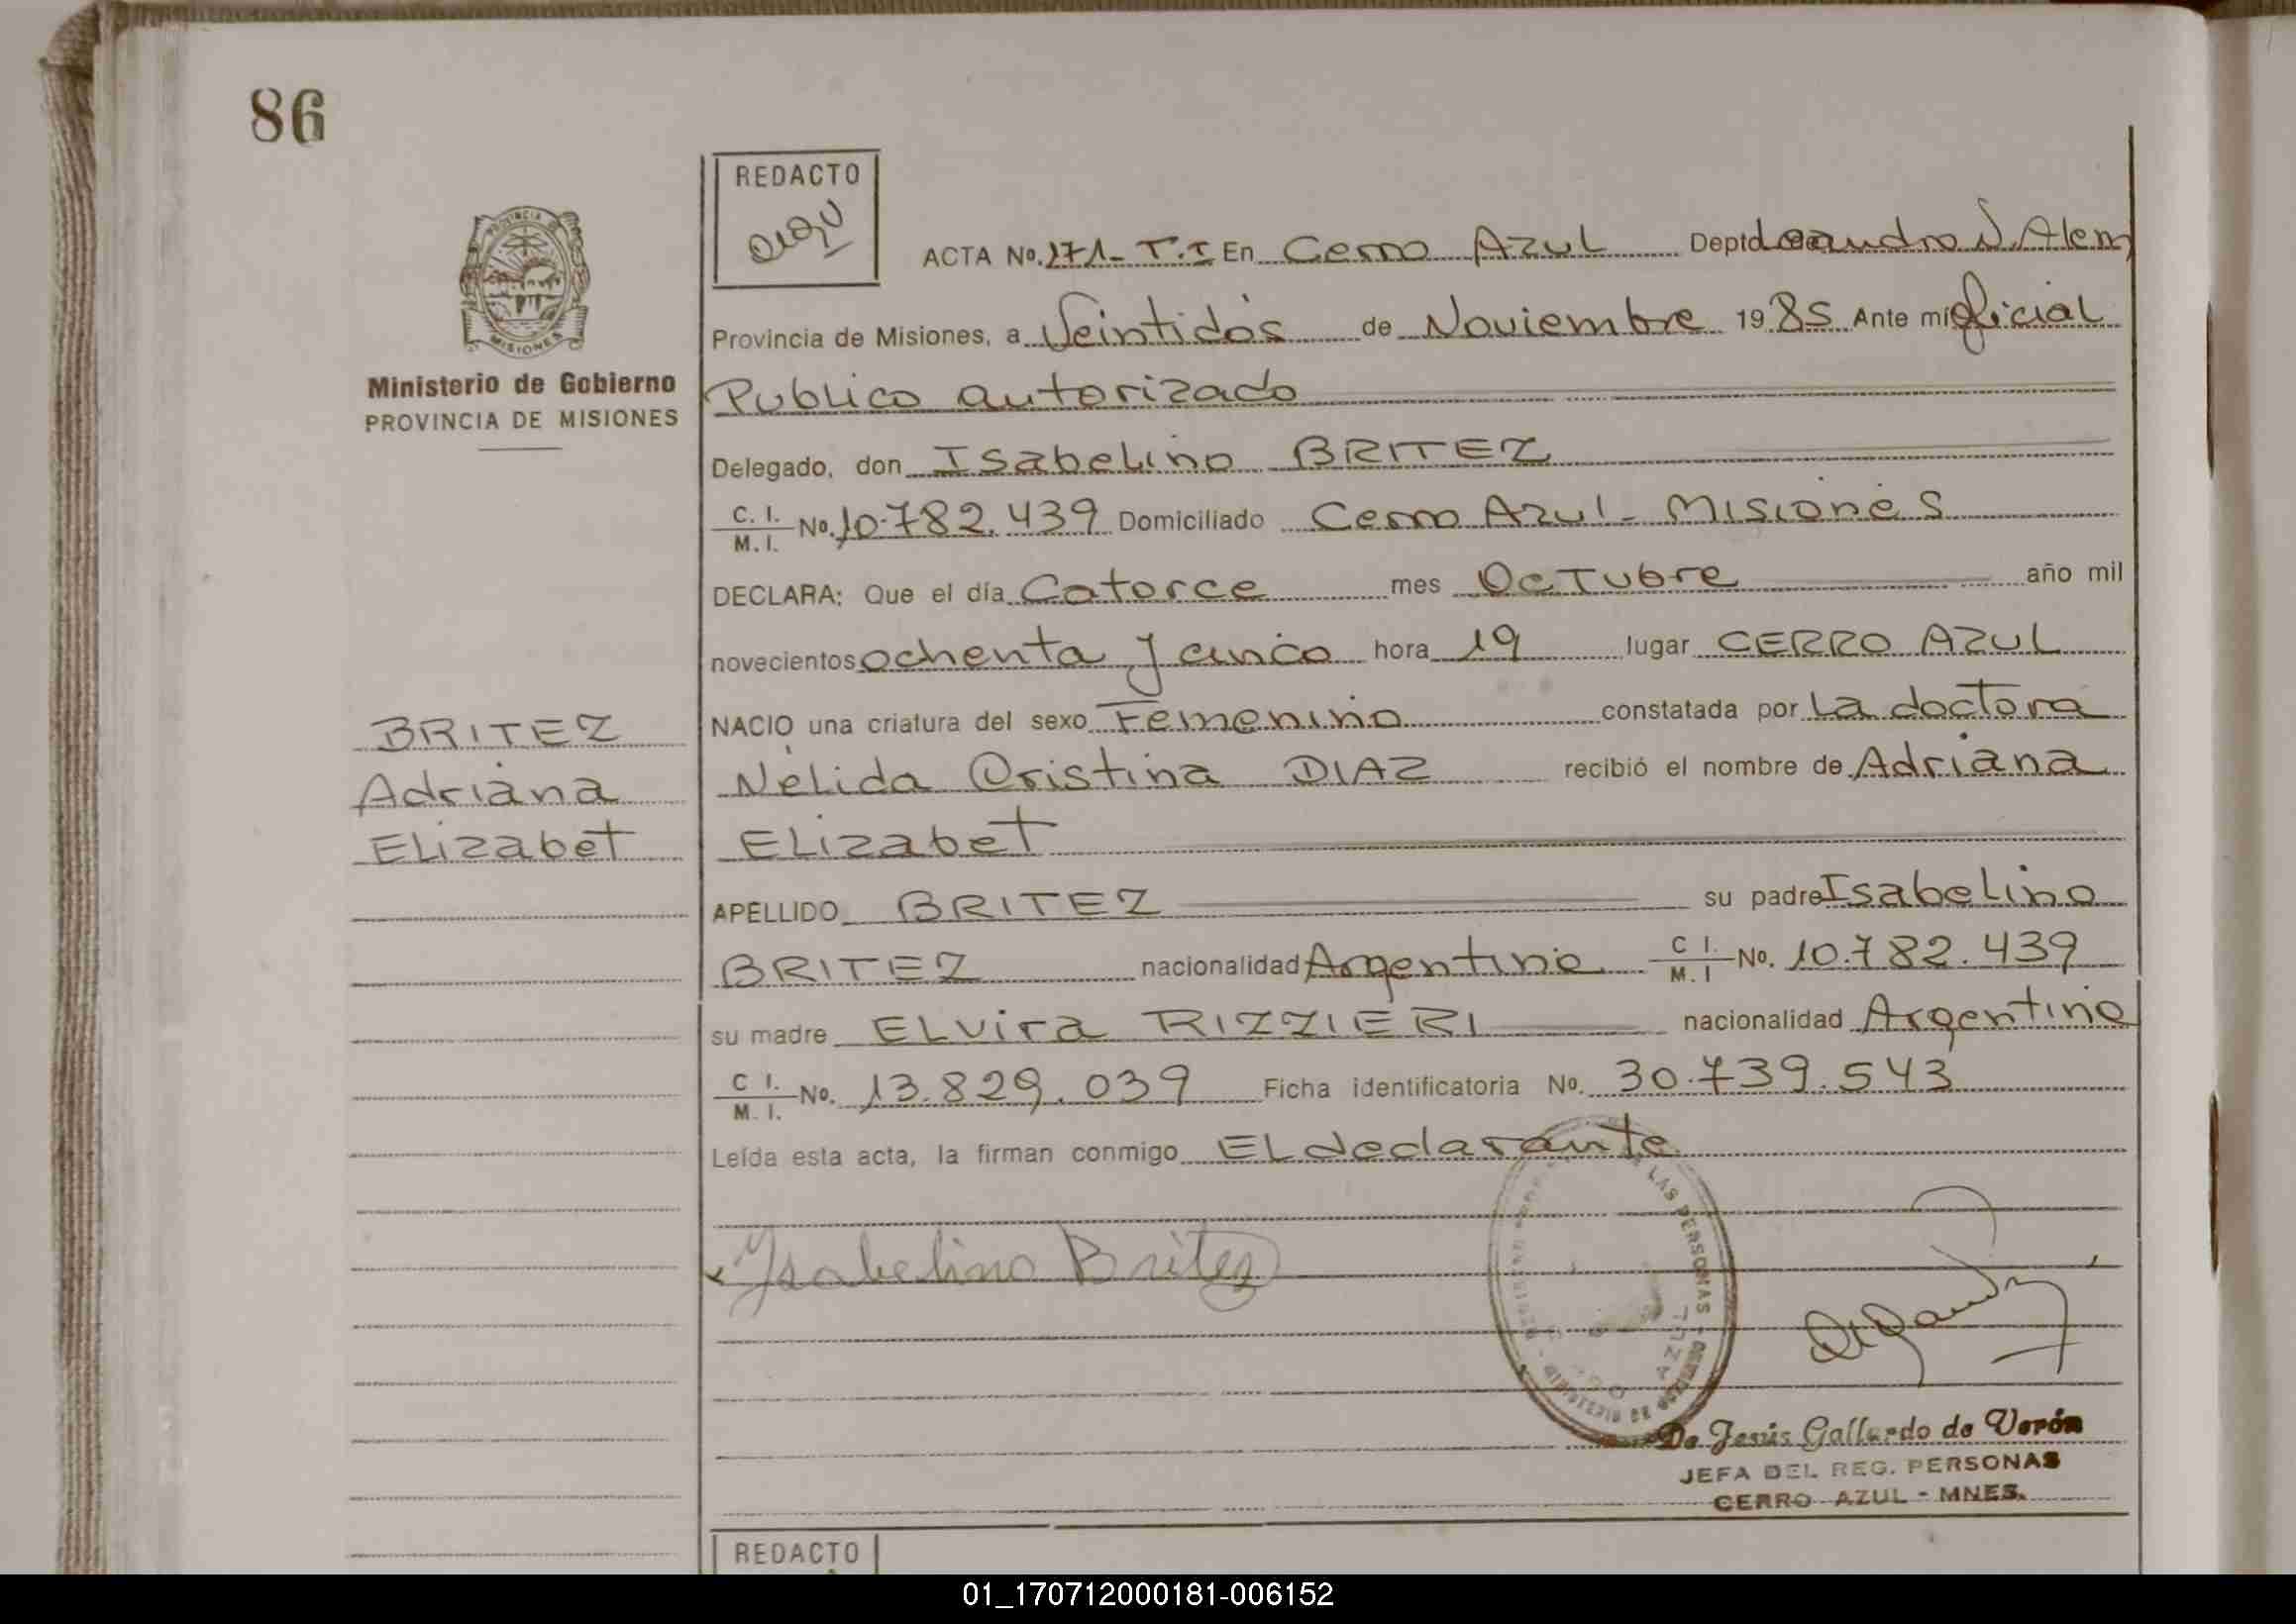 86
REDACTO
PROVINCIA DE
MISIONES
Ministerio de Gobierno
PROVINCIA DE MISIONES
ACTA No. 171- T.I En Cerro Azul Depto Leandro N. Alem
Provincia de Misiones, a Veintidós de Noviembre 1985 Ante mi oficial
Publico autorizado
Delegado, don Isabelino BRITEZ
C. I. / M. I. No. 10.782.439 Domiciliado Cerro Azul - Misiones
DECLARA: Que el día Catorce mes Octubre año mil
novecientos ochenta y cinco hora 19 lugar CERRO AZUL
NACIO una criatura del sexo Femenino constatada por La doctora
Nélida Cristina DIAZ recibió el nombre de Adriana
Elizabet
APELLIDO BRITEZ su padre Isabelino
BRITEZ nacionalidad Argentino C I. / M. I No. 10.782.439
su madre ELvira RIZZIERI nacionalidad Argentina
C I. / M. I. No. 13.829.039 Ficha identificatoria No. 30.739.543
Leída esta acta, la firman conmigo EL declarante
BRITEZ
Adriana
Elizabet
Isabelino Britez
LAS PERSONAS
AZUL
De Jesús Gallardo de Verón
JEFA DEL REG. PERSONAS
CERRO AZUL - MNES.
REDACTO
01_170712000181-006152